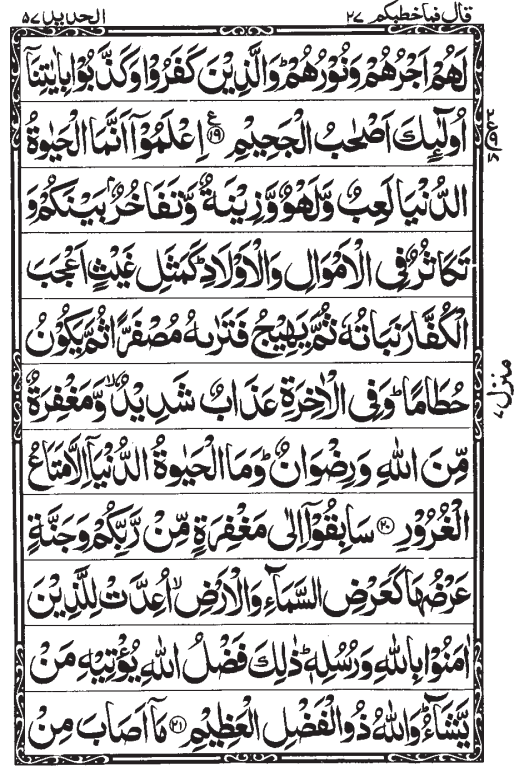 قال فما خطبكم ٢٧
الحديد ٥٧
لَهُمْ اَجْرُهُمْ وَنُوْرُهُمْ ؕ وَالَّذِيْنَ كَفَرُوْا وَكَذَّبُوْا بِاٰيٰتِنَاۤ
اُولٰٓئِكَ اَصْحٰبُ الْجَحِيْمِ ع ۝١٩ اِعْلَمُوْۤا اَنَّمَا الْحَيٰوةُ
الدُّنْيَا لَعِبٌ وَّلَهْوٌ وَّزِيْنَةٌ وَّتَفَاخُرٌۢ بَيْنَكُمْ وَ
تَكَاثُرٌ فِى الْاَمْوَالِ وَالْاَوْلَادِ ؕ كَمَثَلِ غَيْثٍ اَعْجَبَ
الْكُفَّارَ نَبَاتُهٗ ثُمَّ يَهِيْجُ فَتَرٰىهُ مُصْفَرًّا ثُمَّ يَكُوْنُ
حُطَامًا ؕ وَفِى الْاٰخِرَةِ عَذَابٌ شَدِيْدٌ ۙ وَّمَغْفِرَةٌ
مِّنَ اللّٰهِ وَرِضْوَانٌ ؕ وَمَا الْحَيٰوةُ الدُّنْيَاۤ اِلَّا مَتَاعُ
الْغُرُوْرِ ۝٢٠ سَابِقُوْۤا اِلٰى مَغْفِرَةٍ مِّنْ رَّبِّكُمْ وَجَنَّةٍ
عَرْضُهَا كَعَرْضِ السَّمَآءِ وَالْاَرْضِ ۙ اُعِدَّتْ لِلَّذِيْنَ
اٰمَنُوْا بِاللّٰهِ وَرُسُلِهٖ ؕ ذٰلِكَ فَضْلُ اللّٰهِ يُؤْتِيْهِ مَنْ
يَّشَآءُ ؕ وَاللّٰهُ ذُو الْفَضْلِ الْعَظِيْمِ ۝٢١ مَاۤ اَصَابَ مِنْ
منزل ٧